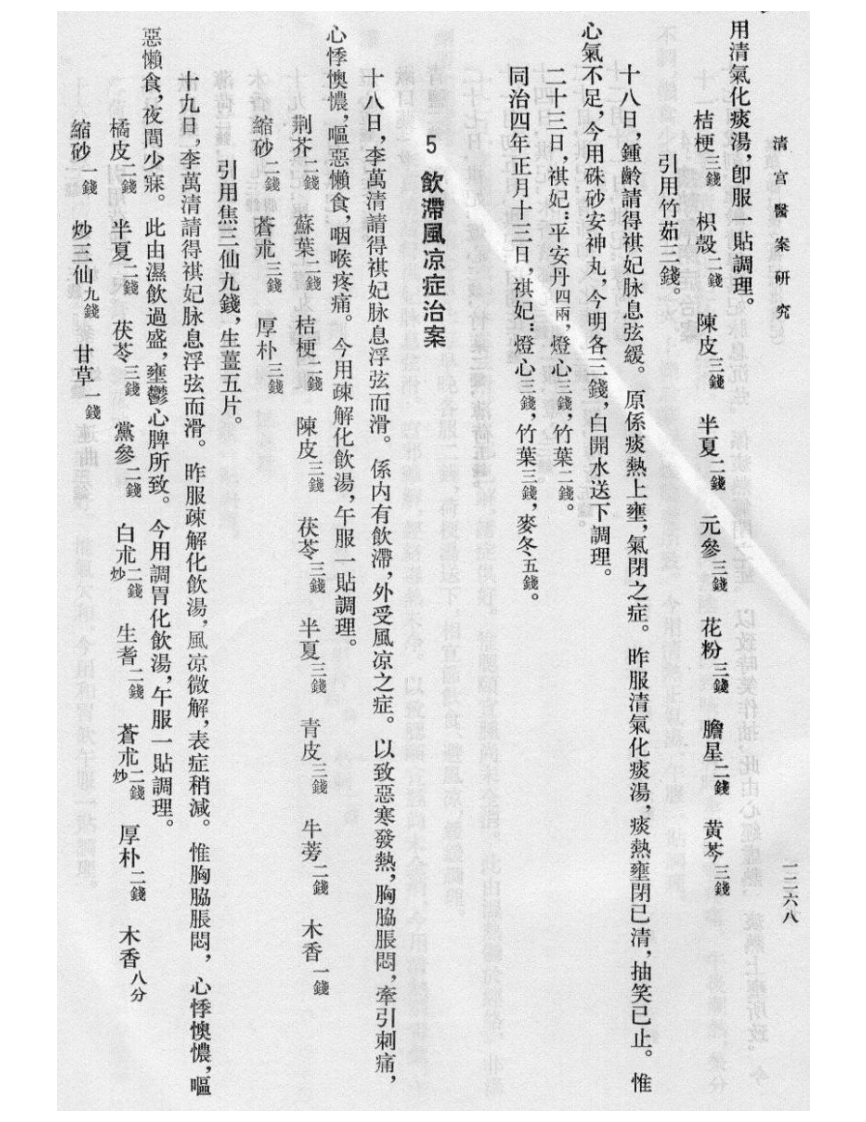 清宮醫案研究
一二六八
用清氣化痰湯,卽服一貼調理。
桔梗三錢 枳殼二錢 陳皮三錢 半夏二錢 元參三錢 花粉三錢 膽星二錢 黄芩三錢
引用竹茹三錢。
十八日,鍾齡請得祺妃脉息弦緩。原係痰熱上壅,氣閉之症。昨服清氣化痰湯,痰熱壅閉已清,抽笑已止。惟
心氣不足,今用硃砂安神丸,今明各三錢,白開水送下調理。
二十三日,祺妃:平安丹四兩,燈心三錢,竹葉二錢。
同治四年正月十三日,祺妃:燈心三錢,竹葉三錢,麥冬五錢。
5 飲滯風凉症治案
十八日,李萬清請得祺妃脉息浮弦而滑。係内有飲滯,外受風凉之症。以致惡寒發熱,胸脇脹悶,牽引刺痛,
心悸懊憹,嘔惡懶食,咽喉疼痛。今用疎解化飲湯,午服一貼調理。
荆芥二錢 蘇葉二錢 桔梗二錢 陳皮三錢 茯苓三錢 半夏三錢 青皮三錢 牛蒡二錢 木香一錢
縮砂二錢 蒼朮三錢 厚朴三錢
引用焦三仙九錢,生薑五片。
十九日,李萬清請得祺妃脉息浮弦而滑。昨服疎解化飲湯,風凉微解,表症稍減。惟胸脇脹悶,心悸懊憹,嘔
惡懶食,夜間少寐。此由濕飲過盛,壅鬱心脾所致。今用調胃化飲湯,午服一貼調理。
橘皮二錢 半夏二錢 茯苓三錢 黨參二錢 白朮二錢炒 生耆二錢 蒼朮二錢炒 厚朴二錢 木香八分
縮砂一錢 炒三仙九錢 甘草一錢